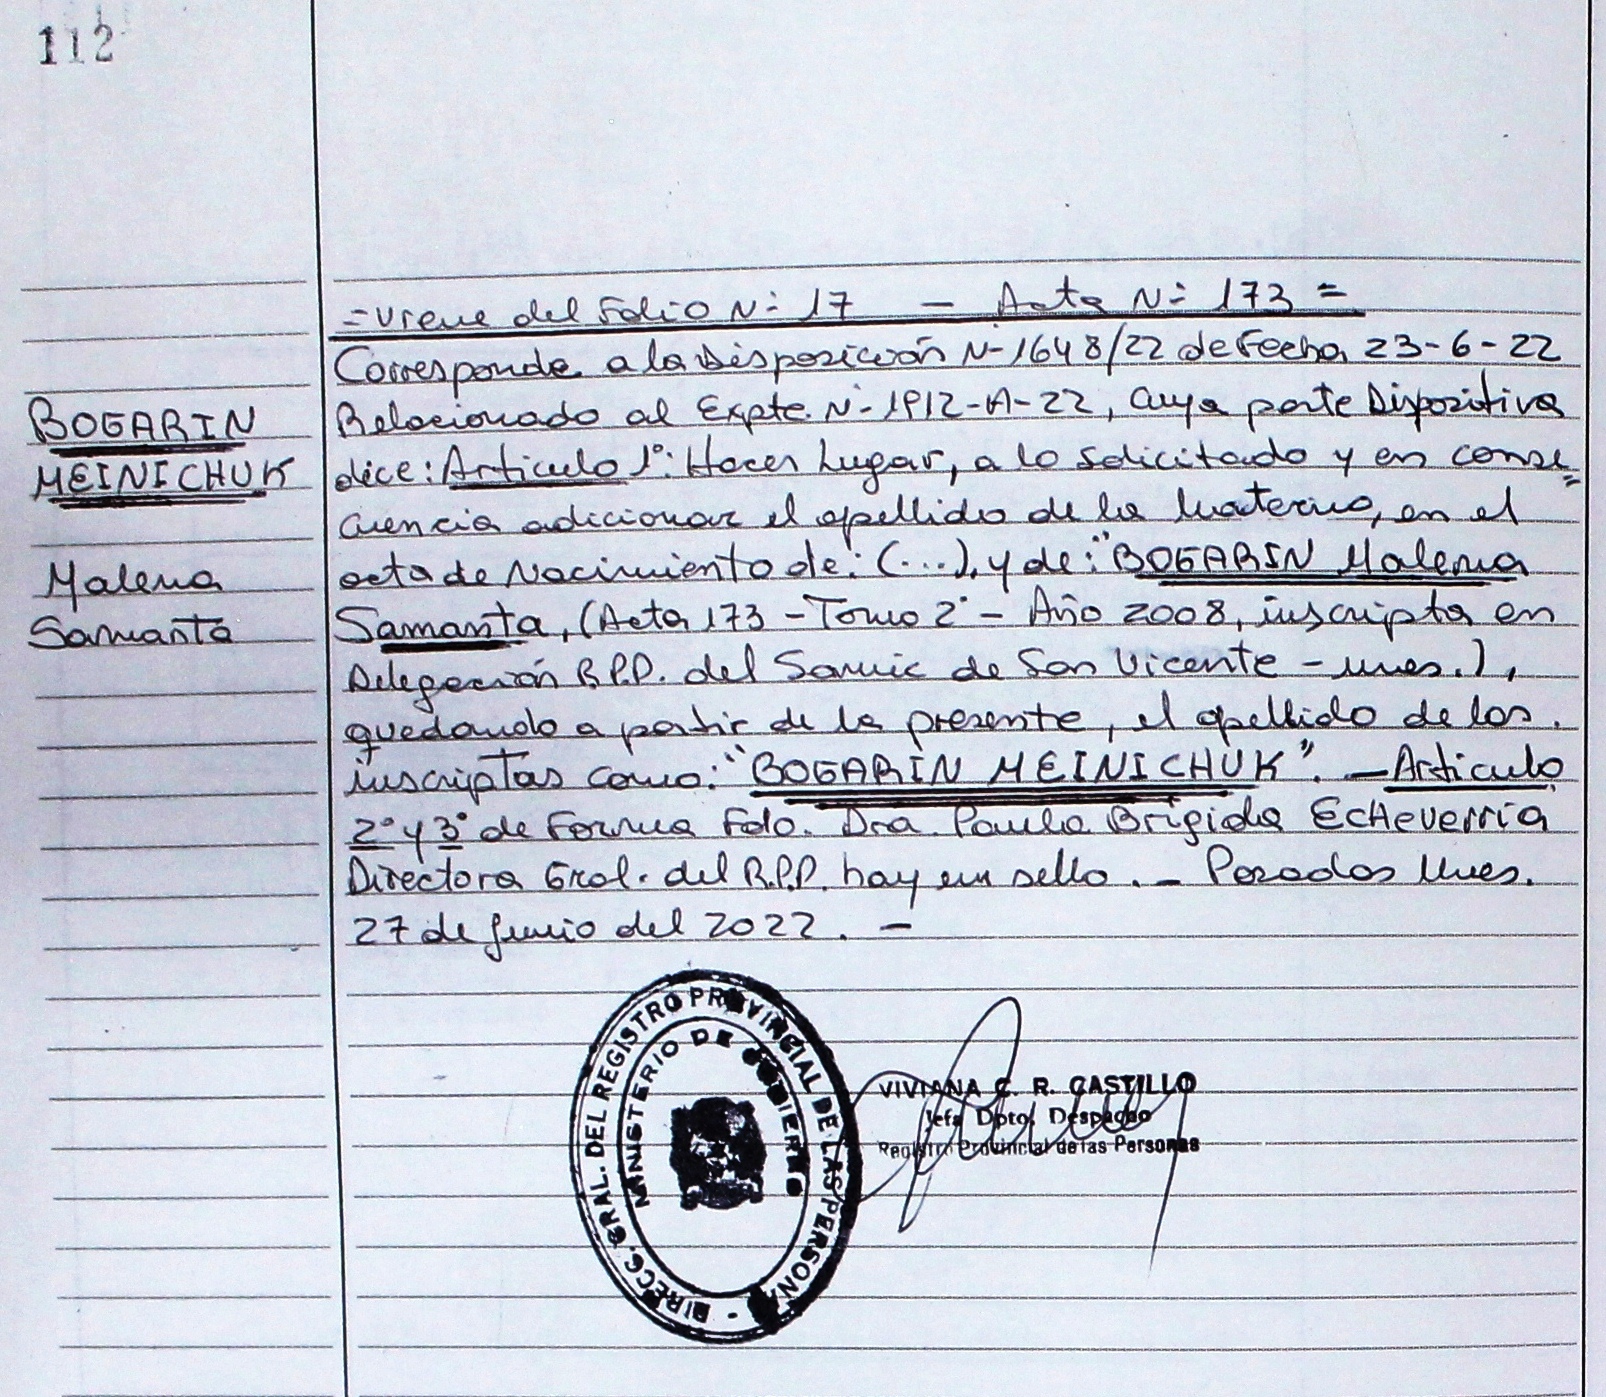 112
=Viene del Folio N= 17 — Acta N= 173 =
Corresponde a la Disposición N- 1648/22 de Fecha 23-6-22
Relacionado al Expte. N- 1912-A-22, cuya parte Dispositiva
dice: Articulo 1°: Hacer Lugar, a lo solicitado y en conse=
cuencia adicionar el apellido de la materno, en el
acta de Nacimiento de: (...), y de: "BOGARIN Malena
Samanta, (Acta 173 - Tomo 2° - Año 2008, inscripta en
Delegación R.P.P. del Samic de San Vicente - mnes.),
quedando a partir de la presente, el apellido de los.
inscriptas como: "BOGARIN MEINICHUK". — Articulo
2° y 3° de Forma Fdo. Dra. Paula Brigida Echeverria
Directora Gral. del R.P.P. hay un sello. — Posadas Mnes.
27 de Junio del 2022. —
BOGARIN
MEINICHUK
Malena
Samanta
DIRECC. GRAL. DEL REGISTRO PROVINCIAL DE LAS PERSONAS -
MINISTERIO DE GOBIERNO
VIVIANA C. R. CASTILLO
Jefa Dpto. Despacho
Registro Provincial de las Personas